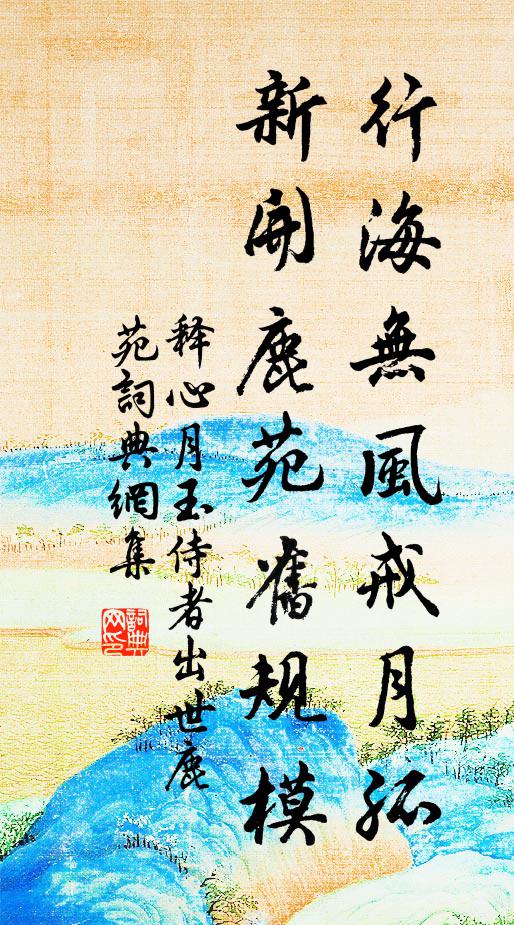 行海無風戒月孤
新開鹿苑舊規模
释心月玉侍者出世鹿
苑詞典網集
詞典